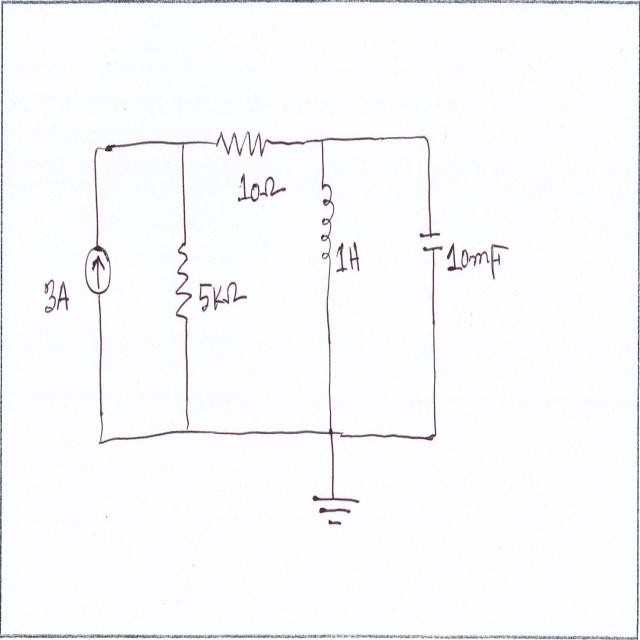 10Ω
3A
5KΩ
1H
10mF